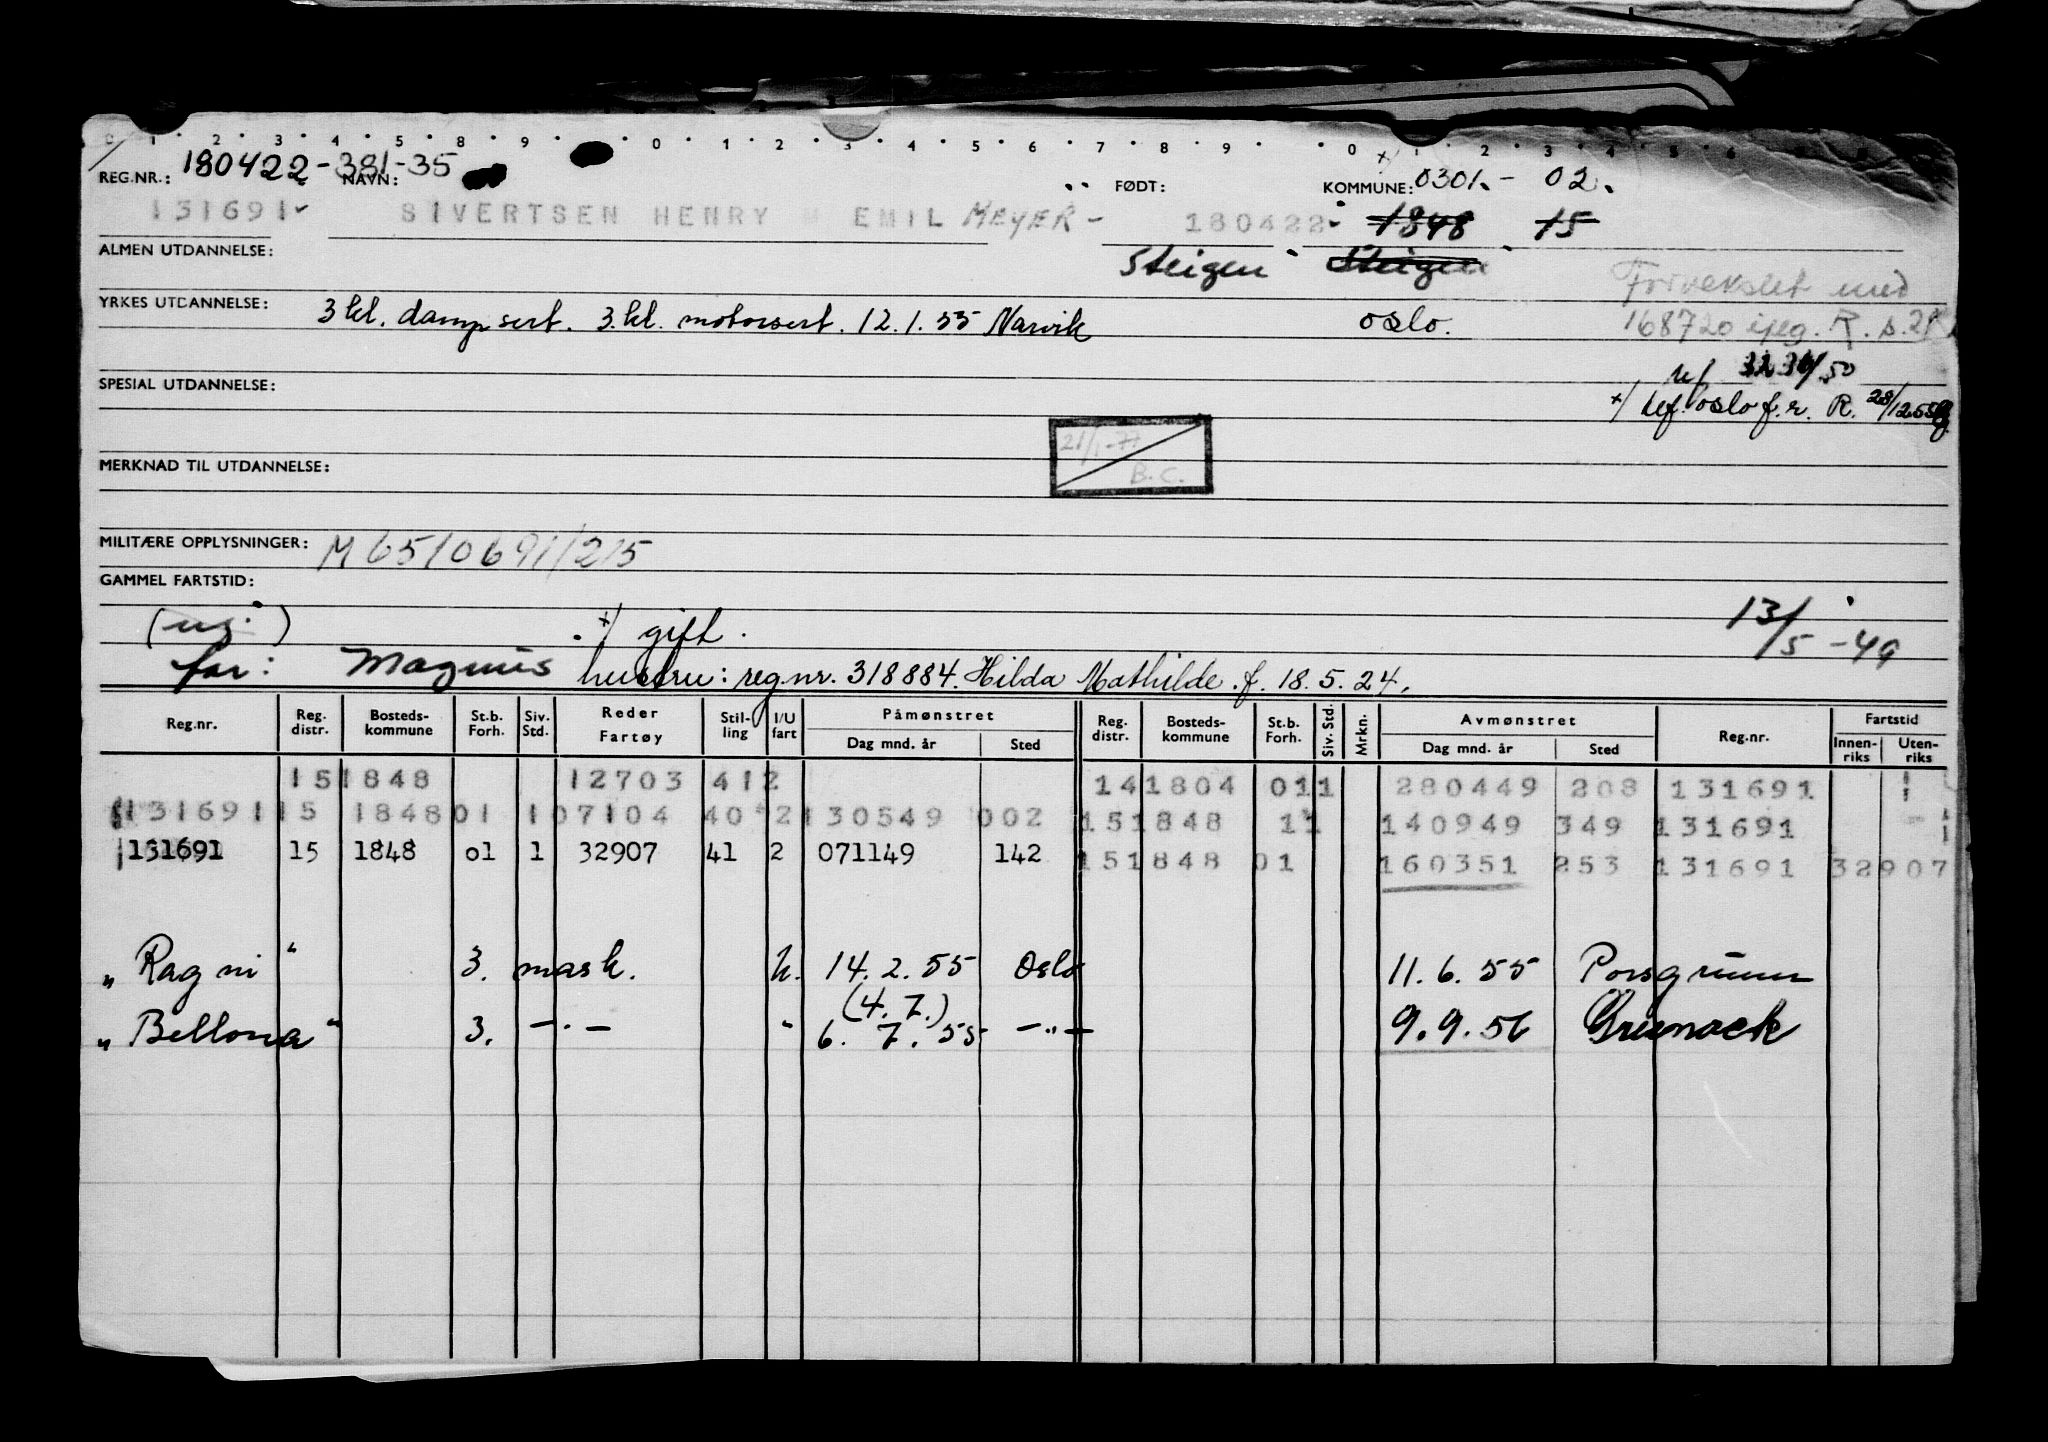 0 1 2 3 4 5 8 9 0 1 2 3 4 5 6 7 8 9 0 1 2 3 4 5 6
REG.NR.: 180422-381-35 NAVN: FØDT: KOMMUNE: 0301.- 02.
131691 SIVERTSEN HENRY M EMIL MEYER - 180422 1848 15
ALMEN UTDANNELSE: Steigen Steigen Forvekslet med
YRKES UTDANNELSE: 3 kl. damp sert. 3. kl. motorsert. 12.1.55 Narvik Oslo. 168720
SPESIAL UTDANNELSE:
/50
x/ Oslo f. r. R. 28/12 55
21/1-77
MERKNAD TIL UTDANNELSE: B.C.
MILITÆRE OPPLYSNINGER: M 6510691/215
GAMMEL FARTSTID:
(ug.) x/ gift. 13/5-49
far: Magnus hustru: reg.nr. 318884. Hilda Mathilde. f. 18.5.24.
Reg.nr. Reg. distr. Bosteds- kommune St.b. Forh. Siv. Std. Reder Fartøy Stil- ling I/U fart Påmønstret Dag mnd. år Sted Reg. distr. Bosteds- kommune St.b. Forh. Siv. Std. Mrkn. Avmønstret Dag mnd. år Sted Reg.nr. Fartstid Innen- riks Uten- riks
15 1848 12703 41 2 14 1804 01 1 280449 208 131691
131691 15 1848 01 1 07104 40 2 130549 002 15 1848 1 1 140949 349 131691
131691 15 1848 01 1 32907 41 2 071149 142 15 1848 01 160351 253 131691 32907
"Ragni" 3. mask. u. 14.2.55 Oslo 11.6.55 Porsgrunn
(4.7.)
"Bellona" 3. -.- " 6.7.55 -"- 9.9.56 Greenock